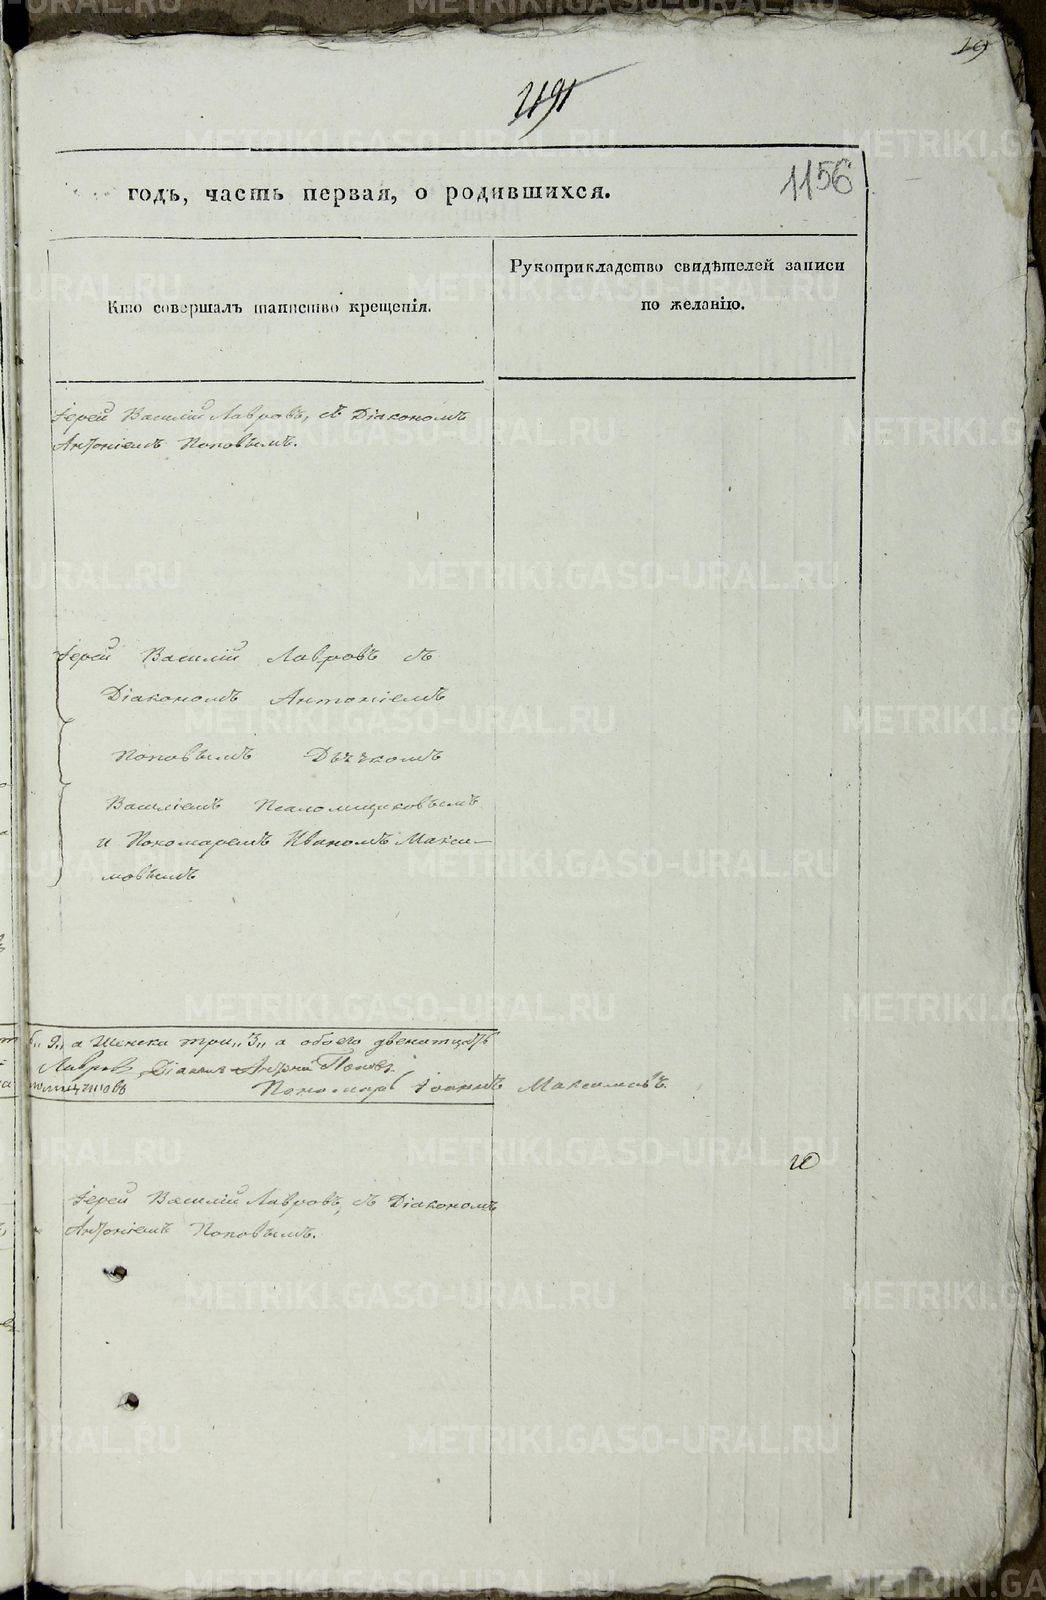 19
1156
годъ, часть первая, о родившихся.
Кто совершалъ таинство крещенія.
Рукоприкладство свидѣтелей записи
по желанію.
Іерей Василій Лавровъ, съ Діакономъ
Антоніемъ Поповымъ.
Іерей Василій Лавровъ съ
Діакономъ Антоніемъ
Поповымъ Дьячкомъ
Василіемъ Псаломщиковымъ
и Пономаремъ Иваномъ Макси-
мовымъ
9,, а Женска три,, 3,, а обоего двенатцать
Лавровъ, Діаконъ Антоній Поповъ.
Пономарь Іоаннъ Максимовъ.
Іерей Василій Лавровъ, съ Діакономъ
Антоніемъ Поповымъ.
METRIKI.GASO-URAL.RU